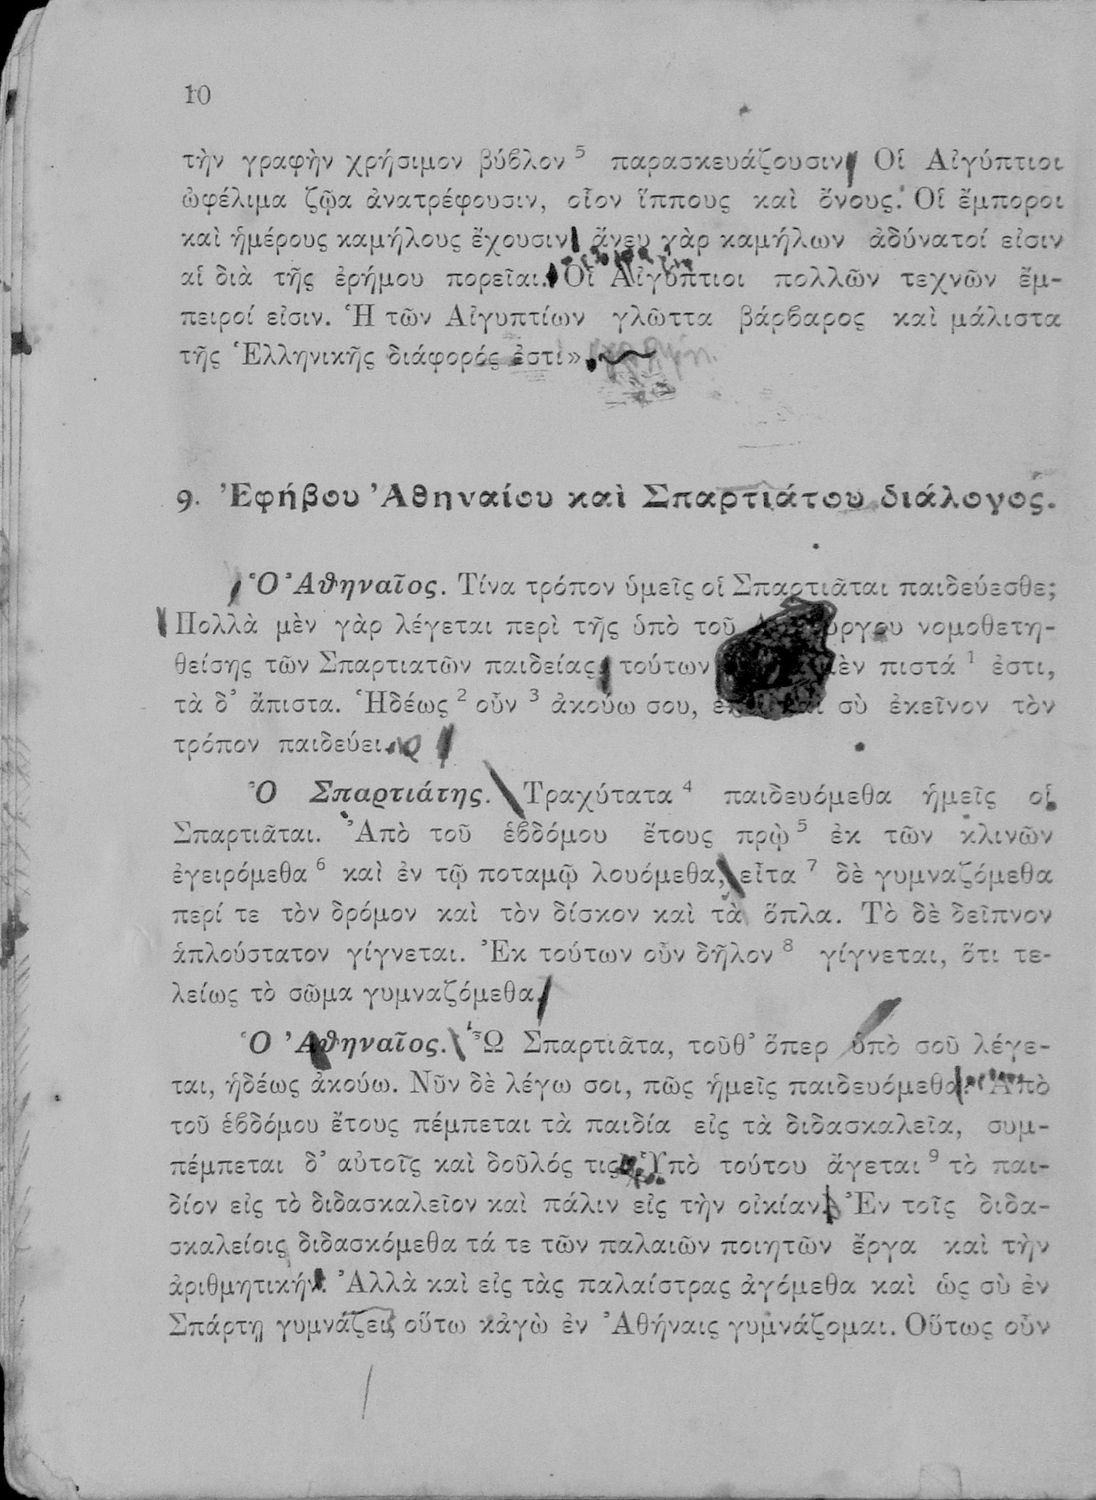 10
τὴν γραφὴν χρήσιμον βύβλον 5 παρασκευάζουσιν. Οἱ Αἰγύπτιοι
ὠφέλιμα ζῷα ἀνατρέφουσιν, οἷον ἵππους καὶ ὄνους. Οἱ ἔμποροι
καὶ ἡμέρους καμήλους ἔχουσιν· ἄνευ γὰρ καμήλων ἀδύνατοί εἰσιν
αἱ διὰ τῆς ἐρήμου πορεῖαι. Οἱ Αἰγύπτιοι πολλῶν τεχνῶν ἔμ-
πειροί εἰσιν. Ἡ τῶν Αἰγυπτίων γλῶττα βάρβαρος καὶ μάλιστα
τῆς Ἑλληνικῆς διάφορός ἐστι».
9. Ἐφήβου Ἀθηναίου καὶ Σπαρτιάτου διάλογος.
Ὁ Ἀθηναῖος. Τίνα τρόπον ὑμεῖς οἱ Σπαρτιᾶται παιδεύεσθε;
Πολλὰ μὲν γὰρ λέγεται περὶ τῆς ὑπὸ τοῦ νομοθετη-
θείσης τῶν Σπαρτιατῶν παιδείας· τούτων μὲν πιστά 1 ἐστι,
τὰ δ' ἄπιστα. Ἡδέως 2 οὖν 3 ἀκούω σου, σὺ ἐκεῖνον τὸν
τρόπον παιδεύει.
Ὁ Σπαρτιάτης. Τραχύτατα 4 παιδευόμεθα ἡμεῖς οἱ
Σπαρτιᾶται. Ἀπὸ τοῦ ἑβδόμου ἔτους πρῲ 5 ἐκ τῶν κλινῶν
ἐγειρόμεθα 6 καὶ ἐν τῷ ποταμῷ λουόμεθα, εἶτα 7 δὲ γυμναζόμεθα
περί τε τὸν δρόμον καὶ τὸν δίσκον καὶ τὰ ὅπλα. Τὸ δὲ δεῖπνον
ἁπλούστατον γίγνεται. Ἐκ τούτων οὖν δῆλον 8 γίγνεται, ὅτι τε-
λείως τὸ σῶμα γυμναζόμεθα.
Ὁ Ἀθηναῖος. Ὦ Σπαρτιᾶτα, τοῦθ' ὅπερ ὑπὸ σοῦ λέγε-
ται, ἡδέως ἀκούω. Νῦν δὲ λέγω σοι, πῶς ἡμεῖς παιδευόμεθα. Ἀπὸ
τοῦ ἑβδόμου ἔτους πέμπεται τὰ παιδία εἰς τὰ διδασκαλεῖα, συμ-
πέμπεται δ' αὐτοῖς καὶ δοῦλός τις. Ὑπὸ τούτου ἄγεται 9 τὸ παι-
δίον εἰς τὸ διδασκαλεῖον καὶ πάλιν εἰς τὴν οἰκίαν. Ἐν τοῖς διδα-
σκαλείοις διδασκόμεθα τά τε τῶν παλαιῶν ποιητῶν ἔργα καὶ τὴν
ἀριθμητικήν. Ἀλλὰ καὶ εἰς τὰς παλαίστρας ἀγόμεθα καὶ ὡς σὺ ἐν
Σπάρτῃ γυμνάζει, οὕτω κἀγὼ ἐν Ἀθήναις γυμνάζομαι. Οὕτως οὖν